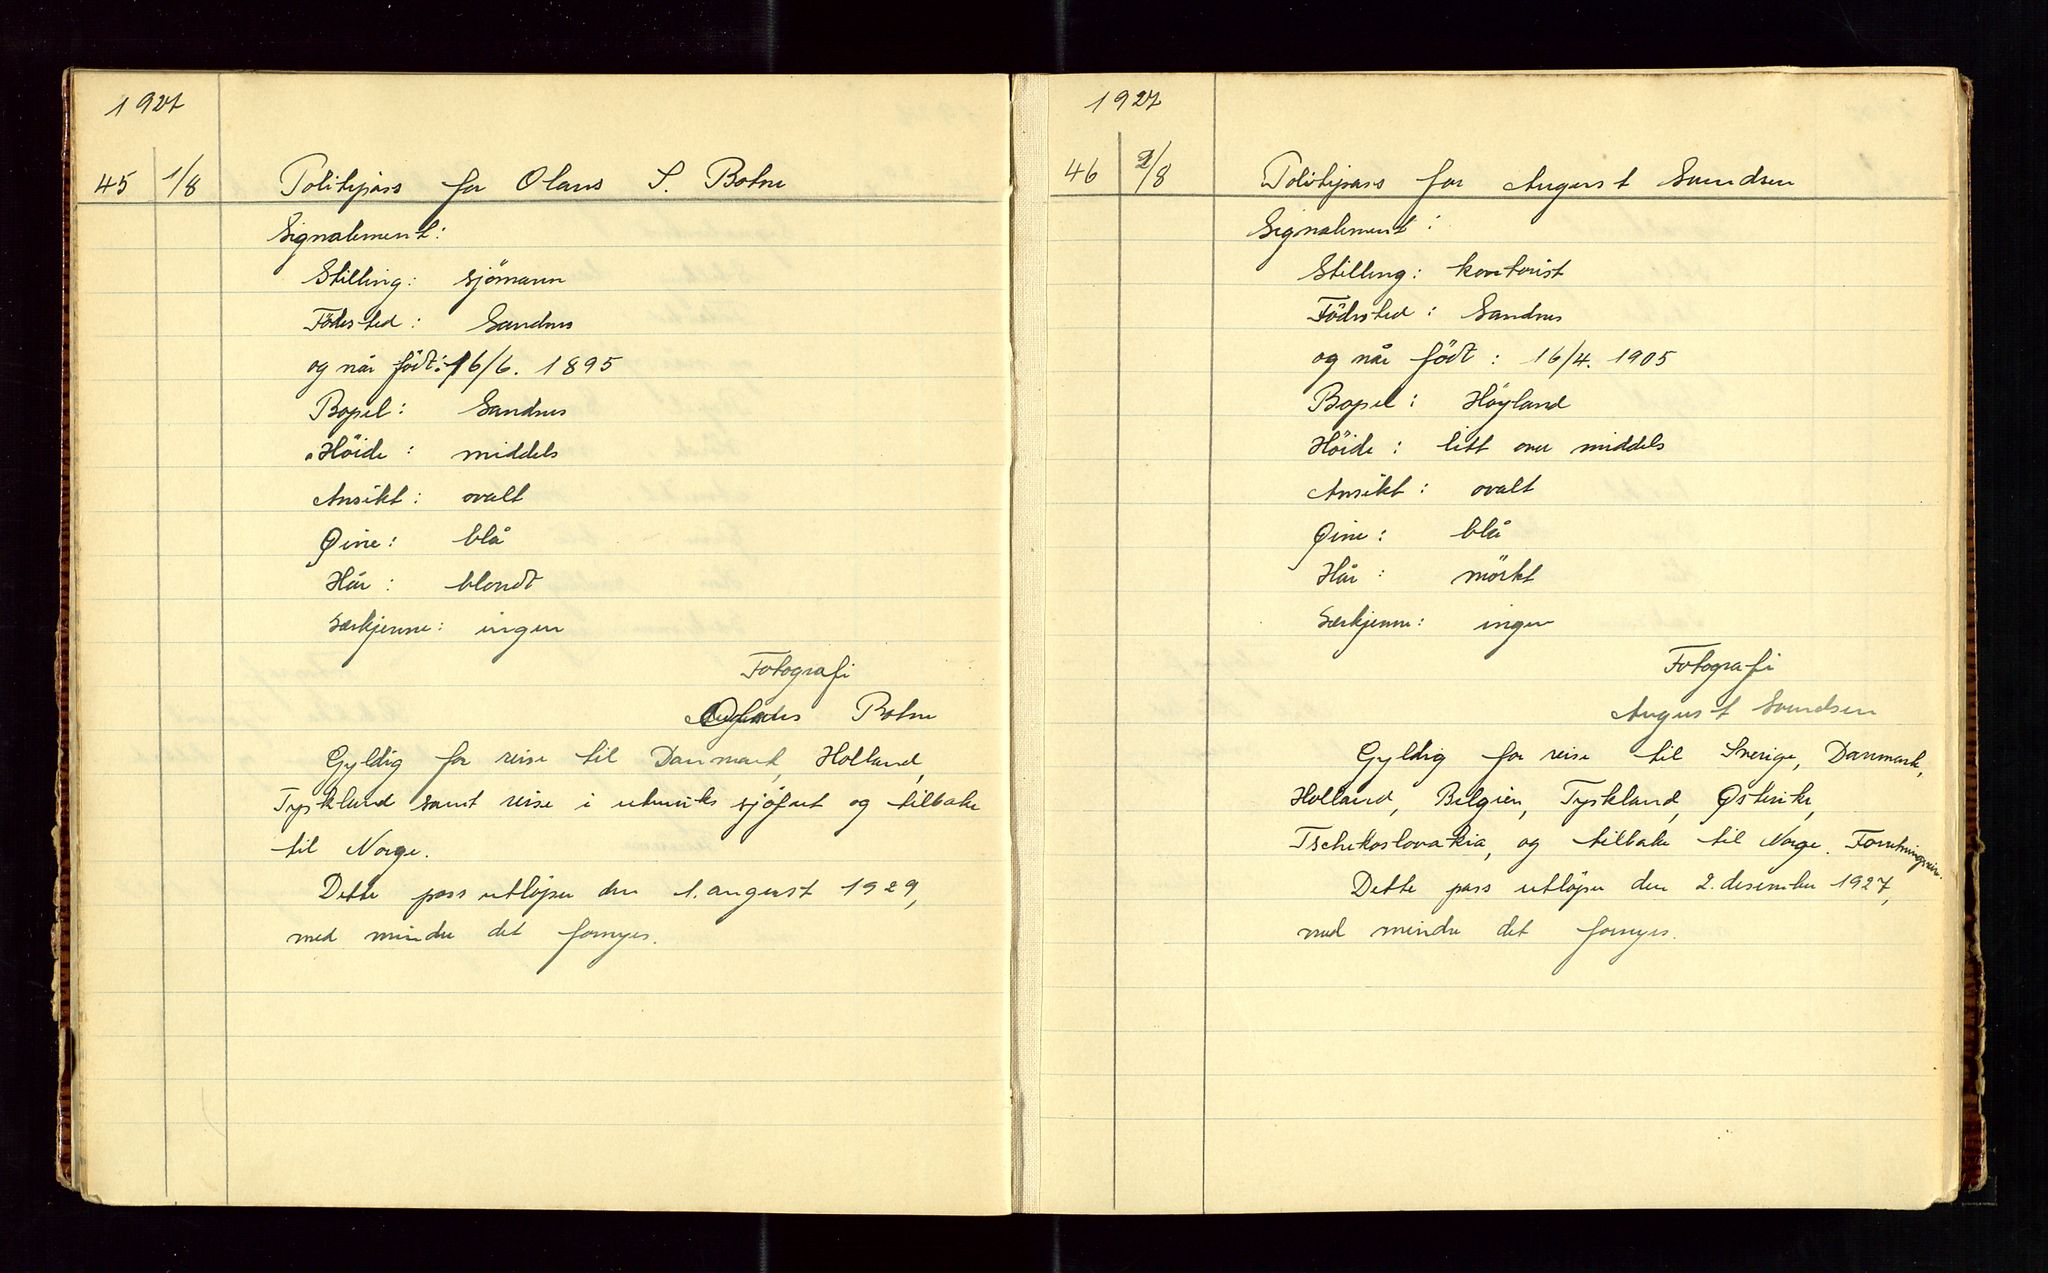 1927
45 1/8 Politipass for Olaus S. Botne
Signalement:
Stilling: sjömann
Födested: Sandnes
og når födt: 16/6. 1895
Bopel: Sandnes
Höide: middels
Ansikt: ovalt
Øine: blå
Hår: blondt
Særkjenne: ingen
Fotografi
Botne
Gyldig for reise til Danmark, Holland,
Tyskland samt reise i utenriks sjöfart og tilbake
til Norge.
Dette pass utløper den 1. august 1929,
med mindre det fornyes.
1927
46 2/8 Politipass for August Svendsen
Signalement:
Stilling: kontorist
Födested: Sandnes
og når födt: 16/4. 1905
Bopel: Höyland
Höide: litt over middels
Ansikt: ovalt
Øine: blå
Hår: mörkt
Særkjenne: ingen
Fotografi
August Svendsen
Gyldig for reise til Sverige, Danmark,
Holland, Belgien, Tyskland, Østerike,
Tschekoslovakia, og tilbake til Norge. Forretningsreise.
Dette pass utløper den 2. desember 1927,
med mindre det fornyes.